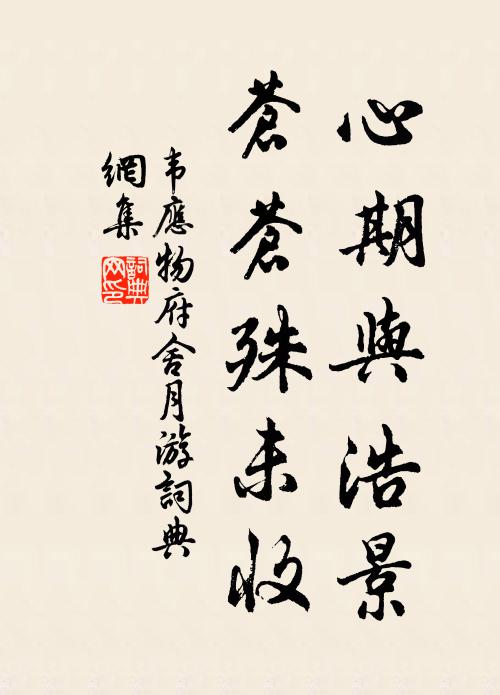 心期與浩景
蒼蒼殊未收
韦應物府舍月游詞典
網集
詞典
网印